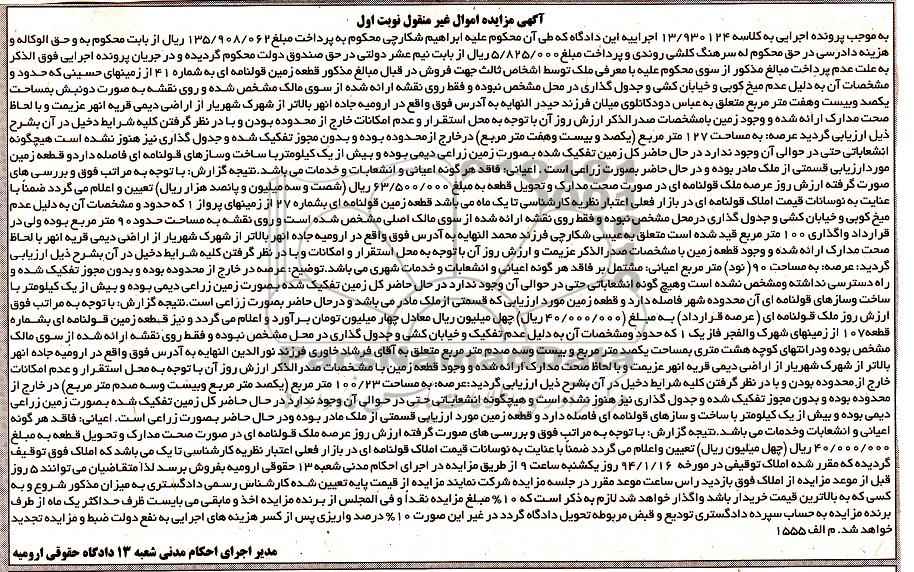 آگهی مزایده اموال غیر منقول نوبت اول
به موجب پرونده اجرایی به کلاسه ۱۳/۹۳۰۱۲۴ اجراییه این دادگاه که طی آن محکوم علیه ابراهیم شکارچی محکوم به پرداخت مبلغ ۱۳۵/۹۰۸/۰۶۲ ریال از بابت محکوم به و حق الوکاله و
هزینه دادرسی در حق محکوم له سرهنگ کلشی روندی و پرداخت مبلغ ۵/۸۲۵/۰۰۰ ریال از بابت نیم عشر دولتی در حق صندوق دولت محکوم گردیده و در جریان پرونده اجرایی فوق الذکر
به علت عدم پرداخت مبالغ مذکور از سوی محکوم علیه با معرفی ملک توسط اشخاص ثالث جهت فروش در قبال مبالغ مذکور قطعه زمین قولنامه ای به شماره ۴۱ از زمینهای حسینی که حدود و
مشخصات آن به دلیل عدم میخ کوبی و خیابان کشی و جدول گذاری در محل مشخص نبوده و فقط روی نقشه ارائه شده از سوی مالک مشخص شده و روی نقشه به صورت دونبش بمساحت
یکصد وبیست وهفت متر مربع متعلق به عباس دودکانلوی میلان فرزند حیدر النهایه به آدرس فوق واقع در ارومیه جاده انهر بالاتر از شهرک شهریار از اراضی دیمی قریه انهر عزیمت و با لحاظ
صحت مدارک ارائه شده و وجود زمین بامشخصات صدرالذکر ارزش روز آن با توجه به محل استقرار و عدم امکانات خارج از محدوده بودن و با در نظر گرفتن کلیه شرایط دخیل در آن بشرح
ذیل ارزیابی گردید عرصه: به مساحت ۱۲۷ متر مربع (یکصد و بیست وهفت متر مربع) درخارج ازمحدوده بوده و بدون مجوز تفکیک شده و جدول گذاری نیز هنوز نشده است هیچگونه
انشعاباتی حتی در حوالی آن وجود ندارد در حال حاضر کل زمین تفکیک شده بصورت زمین زراعی دیمی بوده و بیش از یک کیلومتربا ساخت وسازهای قولنامه ای فاصله داردو قطعه زمین
موردارزیابی قسمتی از ملک مادر بوده و در حال حاضر بصورت زراعی است. اعیانی: فاقد هر گونه اعیانی و انشعابات و خدمات می باشد.نتیجه گزارش: با توجه به مراتب فوق و بررسی های
صورت گرفته ارزش روز عرصه ملک قولنامه ای در صورت صحت مدارک و تحویل قطعه به مبلغ ۶۳/۵۰۰/۰۰۰ ریال (شصت و سه میلیون و پانصد هزار ریال) تعیین و اعلام می گردد ضمناً با
عنایت به نوسانات قیمت املاک قولنامه ای در بازار فعلی اعتبار نظریه کارشناسی تا یک ماه می باشد قطعه زمین قولنامه ای بشماره ۲۷ از زمینهای پرواز ۱ که حدود و مشخصات آن به دلیل عدم
میخ کوبی و خیابان کشی و جدول گذاری درمحل مشخص نبوده و فقط روی نقشه ارائه شده از سوی مالک اصلی مشخص شده است و روی نقشه به مساحت حدود ۹۰ متر مربع بوده ولی در
قرارداد واگذاری ۱۰۰ متر مربع قید شده است متعلق به عیسی شکارچی فرزند محمد النهایه به آدرس فوق واقع در ارومیه جاده انهر بالاتر از شهرک شهریار از اراضی دیمی قریه انهر با لحاظ
صحت مدارک ارائه شده و وجود قطعه زمین با مشخصات صدرالذکر عزیمت و ارزش روز آن با توجه به محل استقرار و امکانات و با در نظر گرفتن کلیه شرایط دخیل در آن بشرح ذیل ارزیابی
گردید: عرصه: به مساحت ۹۰ (نود) متر مربع اعیانی: مشتمل بر فاقد هر گونه اعیانی و انشعابات و خدمات شهری می باشد.توضیح: عرصه در خارج از محدوده بوده و بدون مجوز تفکیک شده و
راه دسترسی نداشته ومشخص نشده است وهیچ گونه انشعاباتی حتی در حوالی آن وجود ندارد در حال حاضر کل زمین تفکیک شده بصورت زمین زراعی دیمی بوده و بیش از یک کیلومتر با
ساخت وسازهای قولنامه ای آن محدوده شهر فاصله دارد و قطعه زمین مورد ارزیابی که قسمتی ازملک مادر می باشد و درحال حاضر بصورت زراعی است.نتیجه گزارش: با توجه به مراتب فوق
ارزش روز ملک قولنامه ای (عرصه قرارداد) به مبلغ (۴۰/۰۰۰/۰۰۰) چهل میلیون ریال معادل چهار میلیون تومان برآورد و اعلام می گردد و نیز قطعه زمین قولنامه ای بشماره
قطعه ۱۰۷ از زمینهای شهرک والفجر فاز یک ۱ که حدود ومشخصات آن به دلیل عدم تفکیک و خیابان کشی و جدول گذاری در محل مشخص نبوده و فقط روی نقشه ارائه شده از سوی مالک
مشخص بوده ودرانتهای کوچه هشت متری بمساحت یکصد متر مربع و بیست وسه صدم متر مربع متعلق به آقای فرشاد خاوری فرزند نورالدین النهایه به آدرس فوق واقع در ارومیه جاده انهر
بالاتر از شهرک شهریار از اراضی دیمی قریه انهر عزیمت و با لحاظ صحت مدارک ارائه شده و وجود قطعه زمین با مشخصات صدر الذکر ارزش روز آن با توجه به محل استقرار و عدم امکانات
خارج از محدوده بودن و با در نظر گرفتن کلیه شرایط دخیل در آن بشرح ذیل ارزیابی گردید:عرصه: به مساحت ۱۰۰/۲۳ متر مربع (یکصد متر مربع وبیست وسه صدم متر مربع) در خارج از
محدوده بوده و بدون مجوز تفکیک شده و جدول گذاری نیز هنوز نشده است و هیچگونه انشعاباتی حتی در حوالی آن وجود ندارد در حال حاضر کل زمین تفکیک شده بصورت زمین زراعی
دیمی بوده و بیش از یک کیلومتر با ساخت و سازهای قولنامه ای فاصله دارد و قطعه زمین مورد ارزیابی قسمتی از ملک مادر بوده ودر حال حاضر بصورت زراعی است. اعیانی: فاقد هر گونه
اعیانی و انشعابات وخدمات می باشد.نتیجه گزارش: با توجه به مراتب فوق و بررسی های صورت گرفته ارزش روز عرصه ملک قولنامه ای در صورت صحت مدارک و تحویل قطعه به مبلغ
۴۰/۰۰۰/۰۰۰ ریال (چهل میلیون ریال) تعیین و اعلام می گردد ضمناً با عنایت به نوسانات قیمت املاک قولنامه ای در بازار فعلی اعتبار نظریه کارشناسی تا یک می باشد که املاک فوق توقیف
گردیده که مقرر شده املاک توقیفی در مورخه ۹۴/۱/۱۶ روز یکشنبه ساعت ۹ از طریق مزایده در اجرای احکام مدنی شعبه ۱۳ حقوقی ارومیه بفروش برسد لذا متقاضیان می توانند ۵ روز
قبل از موعد مزایده از املاک فوق بازدید راس ساعت موعد مقرر در جلسه مزایده شرکت نمایند مزایده از قیمت پایه تعیین شده کارشناس رسمی دادگستری به میزان مذکور شروع و به
کسی که به بالاترین قیمت خریدار باشد واگذار خواهد شد لازم به ذکر است که ۱۰% مبلغ مزایده نقداً و فی المجلس از برنده مزایده اخذ و مابقی می بایست ظرف حداکثر یک ماه از طرف
برنده مزایده به حساب سپرده دادگستری تودیع و قبض مربوطه تحویل دادگاه گردد در غیر این صورت ۱۰% درصد واریزی پس از کسر هزینه های اجرایی به نفع دولت ضبط و مزایده تجدید
خواهد شد. م الف ۱۵۵۵
مدیر اجرای احکام مدنی شعبه ۱۳ دادگاه حقوقی ارومیه